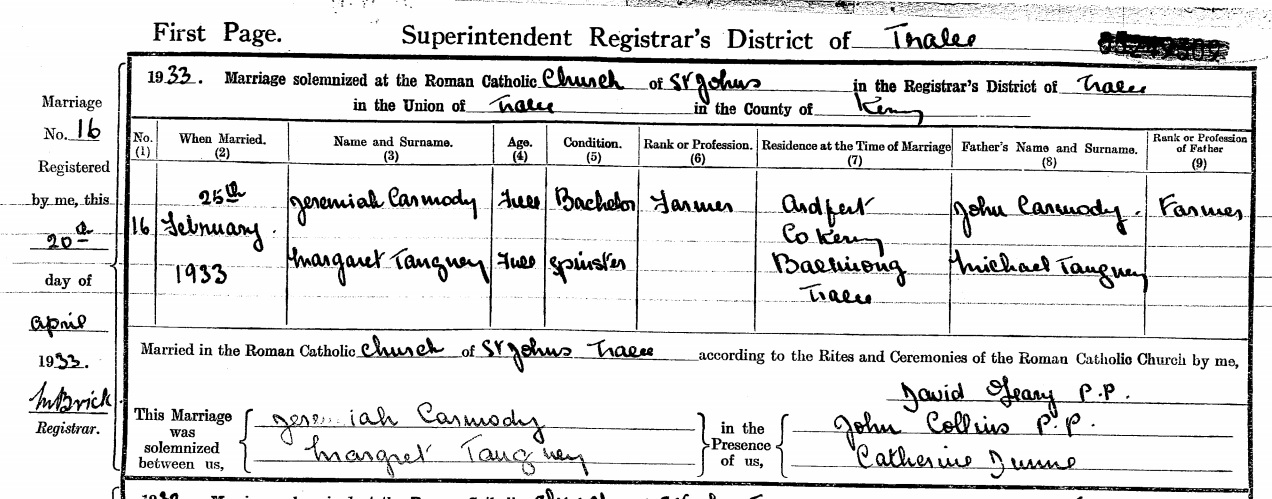 First Page. Superintendent Registrar's District of Tralee
1933. Marriage solemnized at the Roman Catholic Church of St Johns in the Registrar's District of Tralee
in the Union of Tralee in the County of Kerry
Marriage
No. 16
Registered
by me, this
20th
day of
April
1933.
McBrick
Registrar.
No. (1) When Married. (2) Name and Surname. (3) Age. (4) Condition. (5) Rank or Profession. (6) Residence at the Time of Marriage (7) Father's Name and Surname. (8) Rank or Profession of Father (9)
16 25th February 1933
Jeremiah Carmody Full Bachelor Farmer Ardfert Co Kerry John Carmody. Farmer
Margaret Tangney Full Spinster Tralee Michael Tangney
Married in the Roman Catholic Church of St Johns Tralee according to the Rites and Ceremonies of the Roman Catholic Church by me,
David Geary P.P.
This Marriage was solemnized between us,
Jeremiah Carmody
Margret Tangney
in the Presence of us,
John Collins P.P.
Catherine Dunne